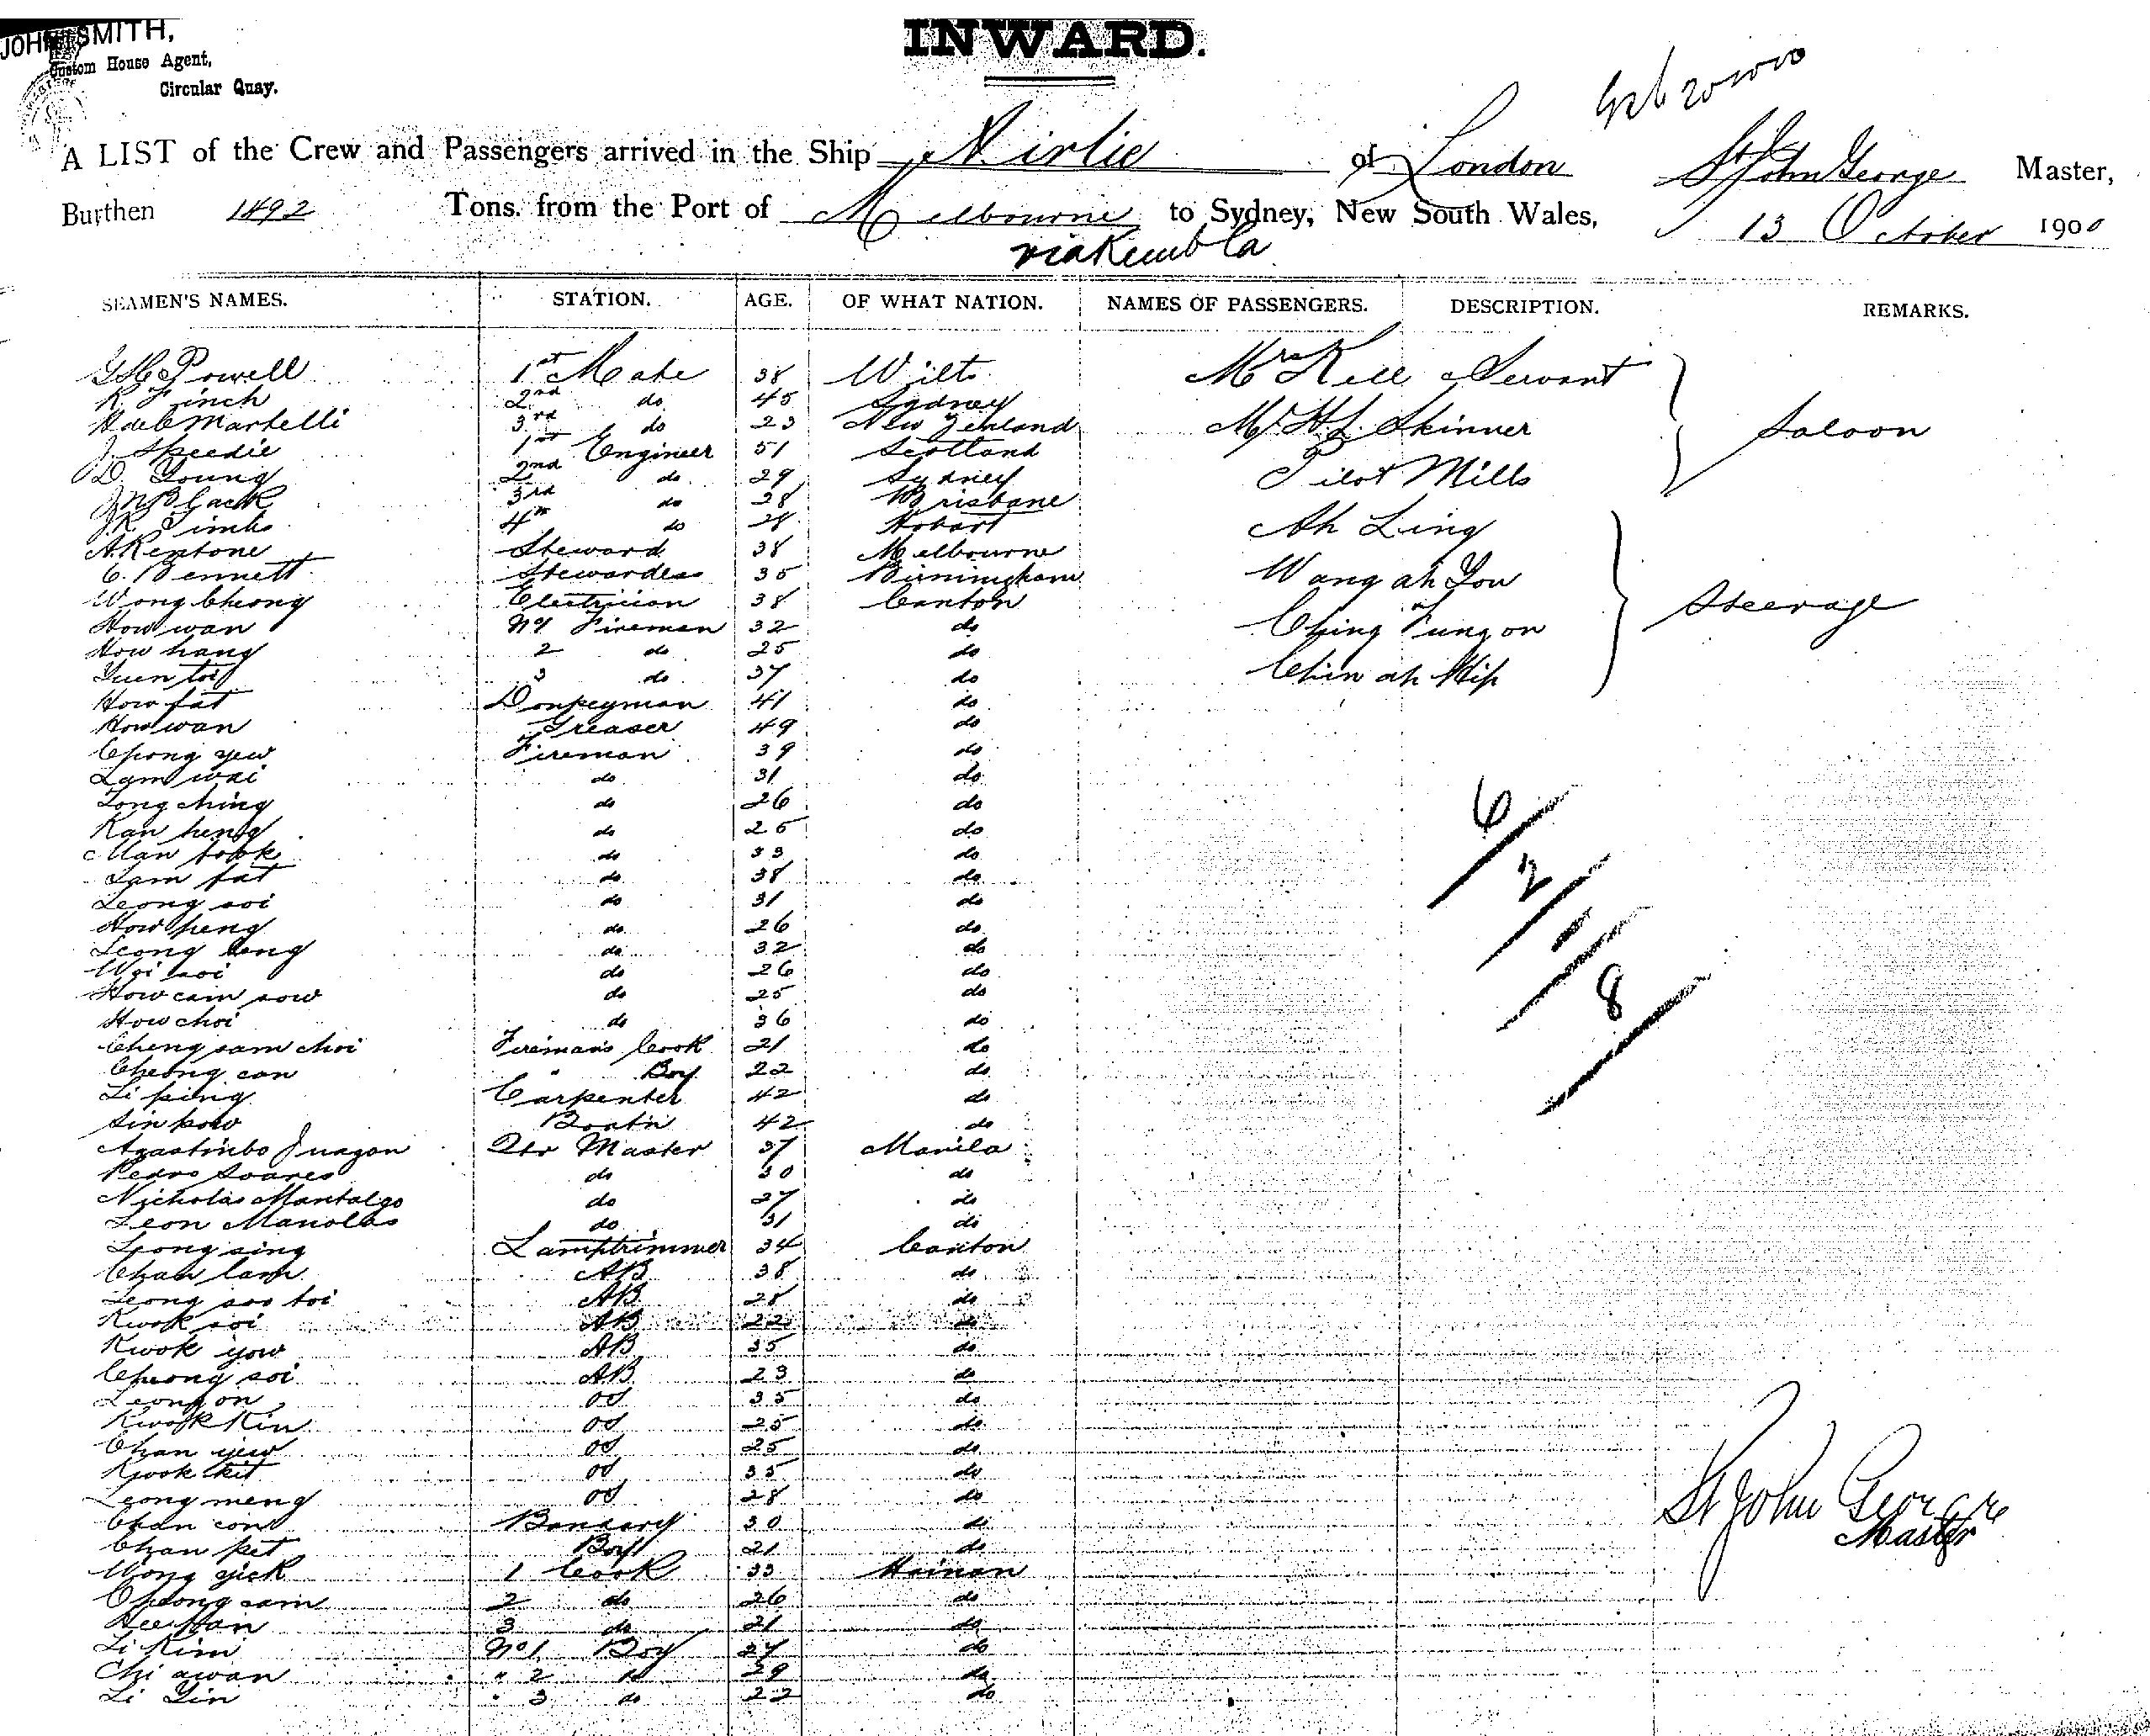 JOHN SMITH,
Custom House Agent,
Circular Quay.
INWARD.
A LIST of the Crew and Passengers arrived in the Ship Airlie of London St John George Master,
Burthen 1492 Tons from the Port of Melbourne to Sydney, New South Wales, 13 October 1900
via Kembla
SEAMEN'S NAMES. STATION. AGE. OF WHAT NATION. NAMES OF PASSENGERS. DESCRIPTION. REMARKS.
Powell 1st Mate 38 Wilts Mrs Kell & Servant
R. Finch 2nd do 45 Sydney
Martelli 3rd do 23 New Zealand Mr H.L. Skinner Saloon
J. Speedie 1st Engineer 51 Scotland
D. Young 2nd do 29 Sydney Pilot Mills
Black 3rd do 28 Brisbane
J.R. Timbs 4th do 28 Hobart Ah Ling
A. Rentone Steward 38 Melbourne
C. Bennett Stewardess 35 Birmingham Wang ah You
Wong Cheong Electrician 38 Canton Steerage
How wan No 1 Fireman 32 do Ching Fung on
How hang 2 do 25 do
Yuen toi 3 do 37 do Chin ah Hip
How fat Donkeyman 41 do
How wan Greaser 49 do
Chong yew Fireman 39 do
Lam wai do 31 do
Tong ching do 26 do
Kan heng do 25 do
Man fook do 33 do
Lam fat do 38 do
Leong soi do 31 do
How heng do 26 do
Leong leng do 32 do
Woi soi do 26 do
How cam sow do 25 do
How choi do 36 do
Cheng sam choi Fireman's Cook 21 do
Cheong can " Boy 22 do
Li ping Carpenter 42 do
Sin kow Boat'n 42 do
Juagon Qtr Master 37 Manila
Pedro Soares do 30 do
Nicholas Mantalgo do 27 do
Leon Manolas do 31 do
Leong sing Lamptrimmer 34 Canton
Chan lam AB 38 do
Leong soo toi AB 28 do
Kwok soi AB 22 do
Kwok yow AB 35 do
Cheong soi AB 23 do
Leong on OS 35 do
Kwok Kin OS 25 do
Chan yew OS 25 do
Kwok kit OS 35 do
Leong meng OS 28 do
Chan con 30 do
Chan pet Boy 21 do
Wong gick 1 Cook 33 Hainan
Cheong sam 2 do 26 do
Hee Han 3 do 21 do
Li Kim No 1 Boy 27 do
Chi awan " 2 do 29 do
Li Yin " 3 do 22 do
6
2
1
8
St John George
Master